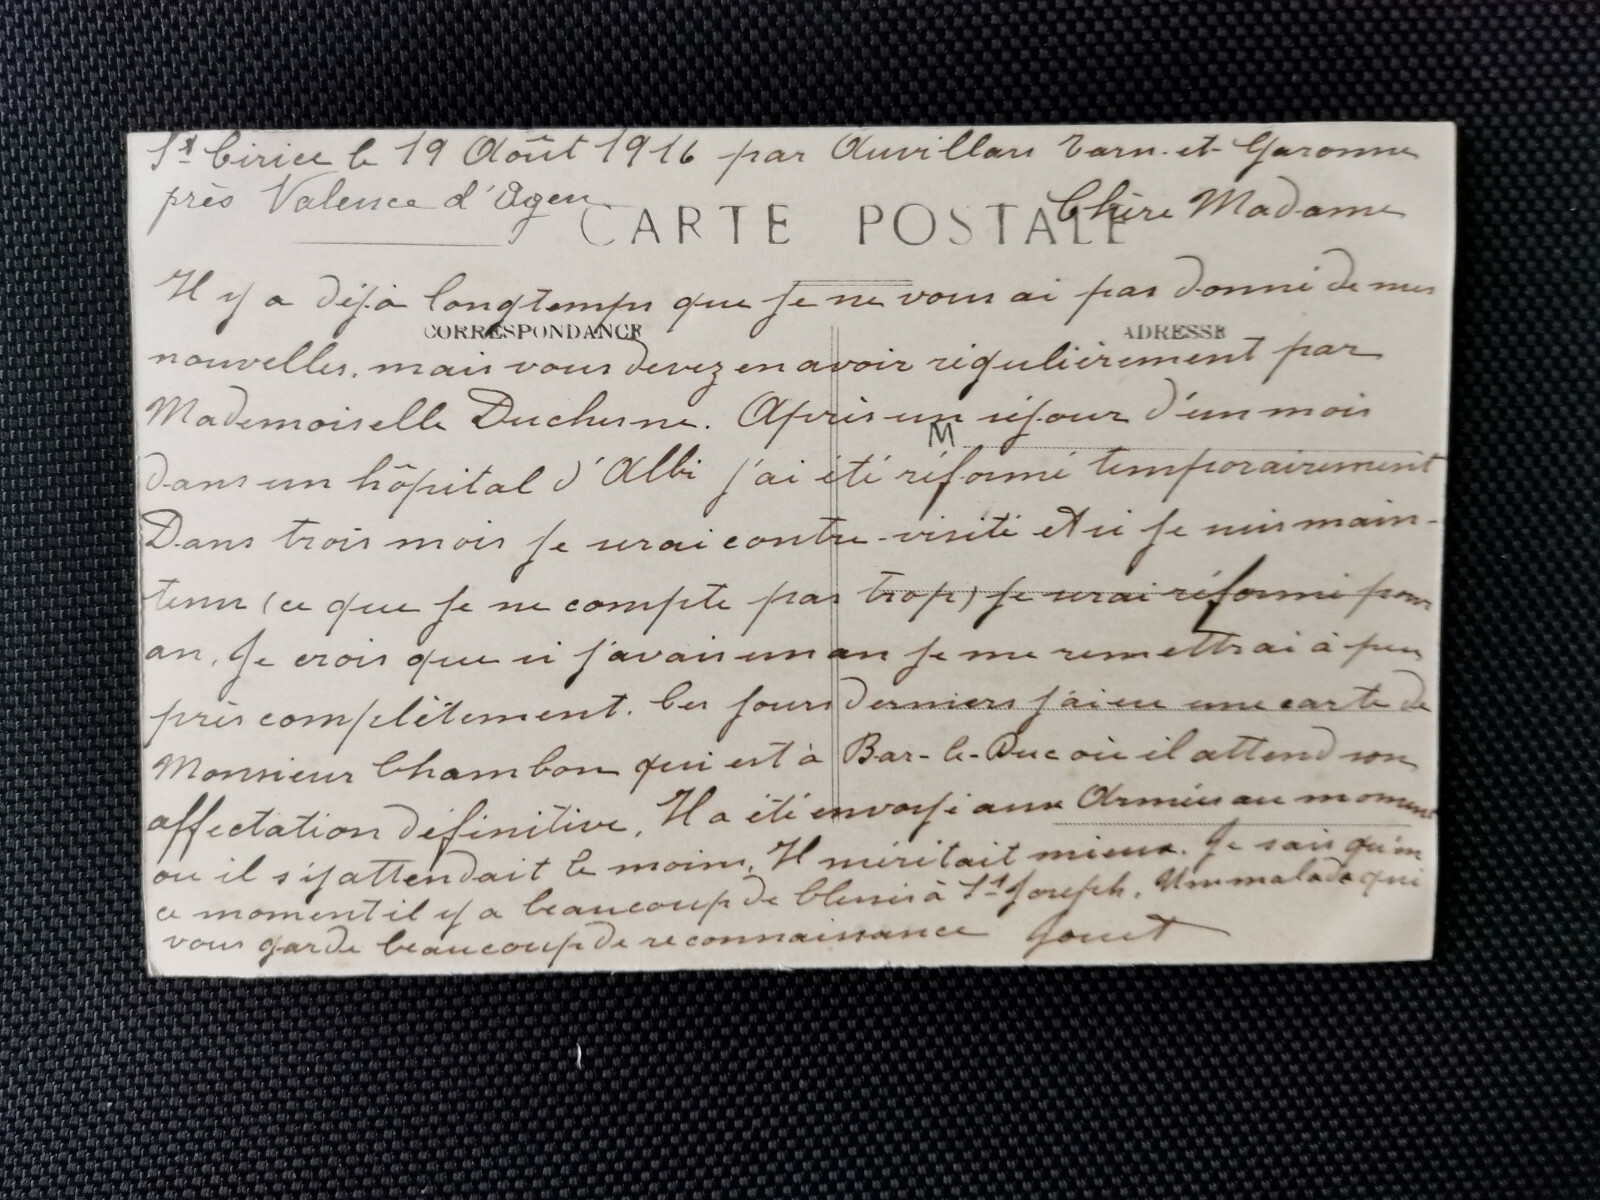 St Cirice le 19 Août 1916 par Auvillars Tarn-et-Garonne
près Valence d'Agen
CARTE POSTALE
Chère Madame
Il y a déjà longtemps que je ne vous ai pas donné de mes
CORRESPONDANCE
ADRESSE
nouvelles, mais vous devez en avoir régulièrement par
Mademoiselle Duchesne. Après un séjour d'un mois
M
dans un hôpital d'Albi j'ai été réformé temporairement
Dans trois mois je serai contre-visité et si je suis main-
tenu (ce que je ne compte pas trop) je serai réformé pour
an. Je crois que si j'avais un an je me remettrai à peu
près complètement. Ces jours derniers j'ai eu une carte de
Monsieur Chambon qui est à Bar-le-Duc où il attend son
affectation définitive. Il a été envoyé aux Armées au moment
ou il s'y attendait le moins. Il méritait mieux. Je sais qu'en
ce moment il y a beaucoup de blessés à St Joseph. Un malade qui
vous garde beaucoup de reconnaissance Jouet